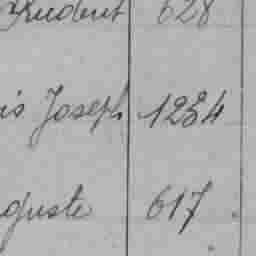 Prudent 628
is Joseph 1234
guste 617